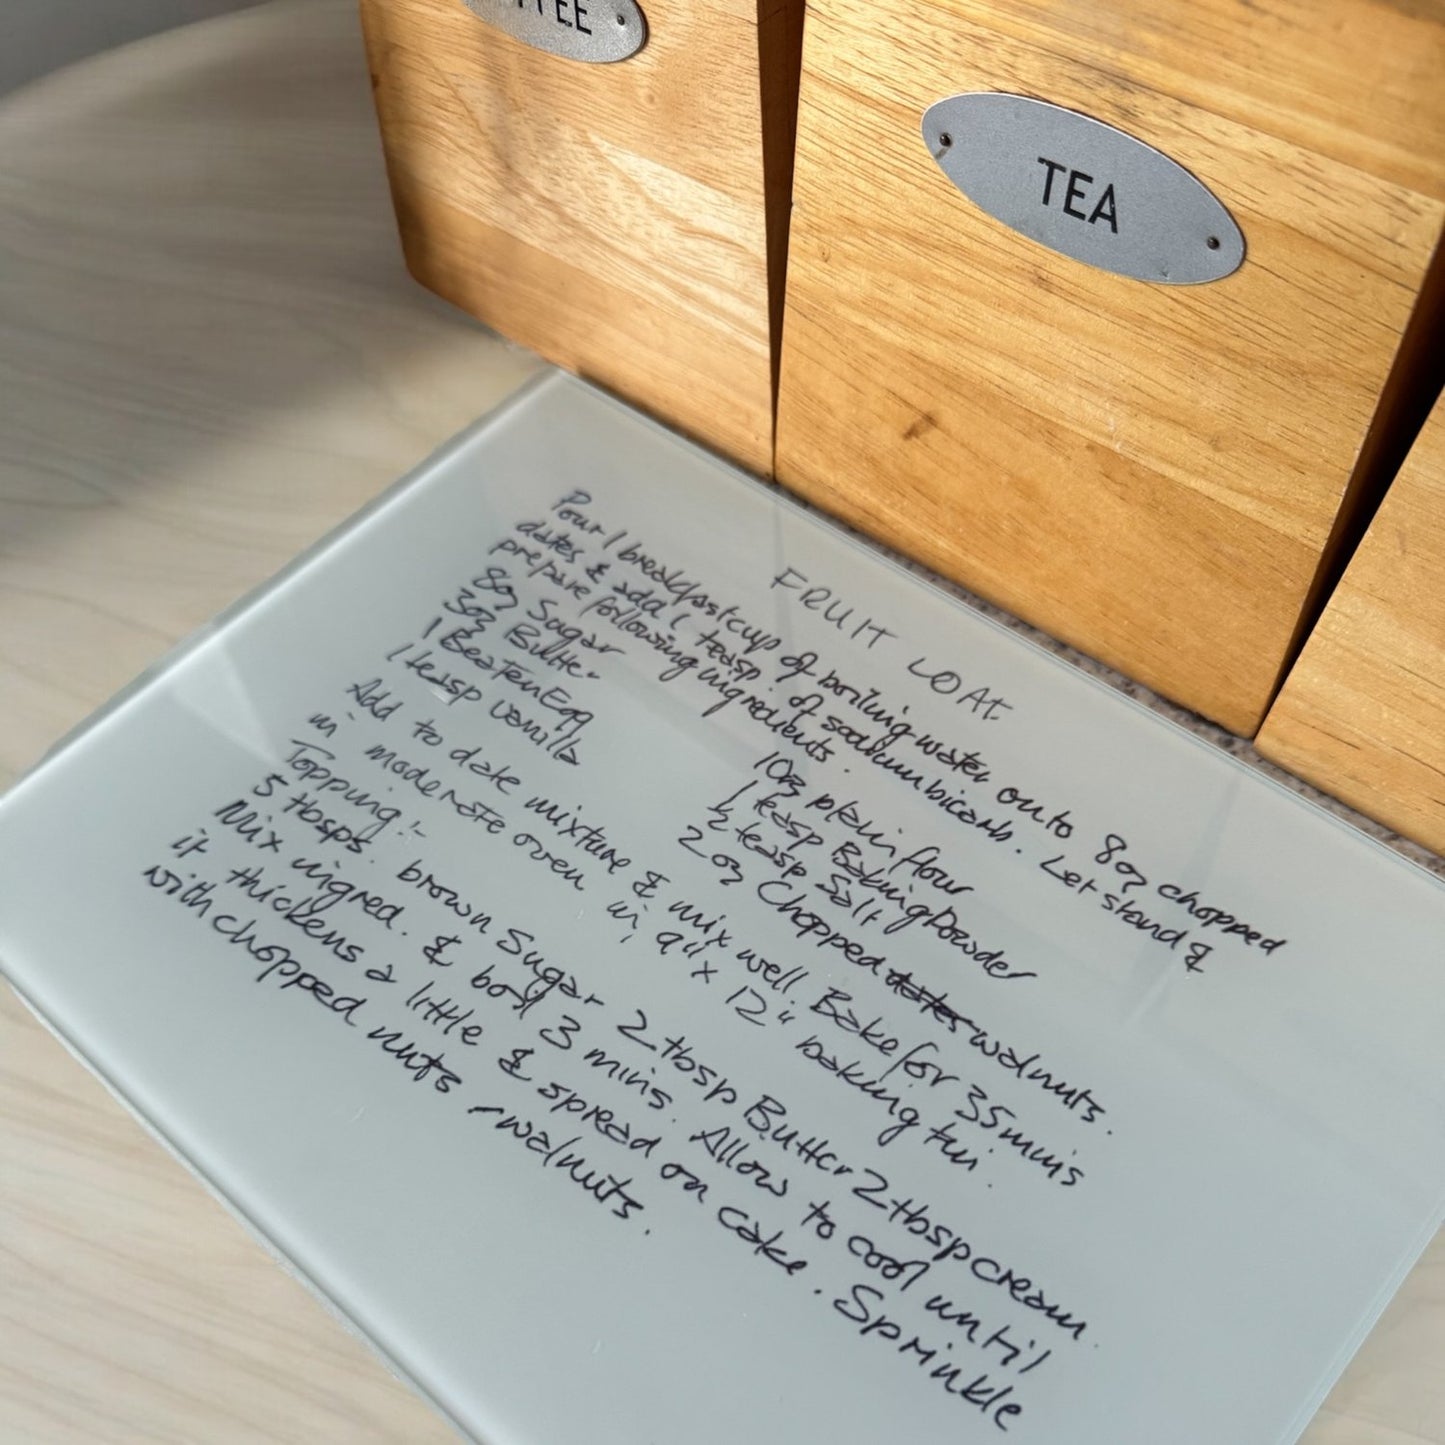 FFEE
TEA
FRUIT LOAF.
Pour 1 breakfastcup of boiling water onto 8oz chopped
dates & add 1 teasp. of sodium bicarb. Let stand &
prepare following ingredients.
8oz Sugar 10oz plain flour
3oz Butter 1 teasp Baking Powder
1 Beaten Egg ½ teasp Salt
1 teasp vanilla 2oz Chopped dates walnuts.
Add to date mixture & mix well. Bake for 35 mins
in moderate oven in 9" x 12" baking tin.
Topping:-
5 tbsps. brown Sugar 2 tbsp Butter 2 tbsp cream
Mix ingred. & boil 3 mins. Allow to cool until
it thickens a little & spread on cake. Sprinkle
with chopped nuts - walnuts.